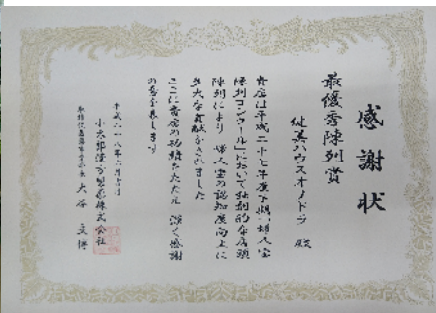 感謝状
最優秀陳列賞
健美ハウスオノドラ 殿
貴店は平成二十七年度下期「婦人宝
陳列コンクール」において独創的な店頭
陳列により 婦人宝の認知度向上に
多大な貢献をされました
ここに貴店の功績をたたえ 深く感謝
の意を表します
平成二十八年六月吉日
小太郎漢方製薬株式会社
取締役